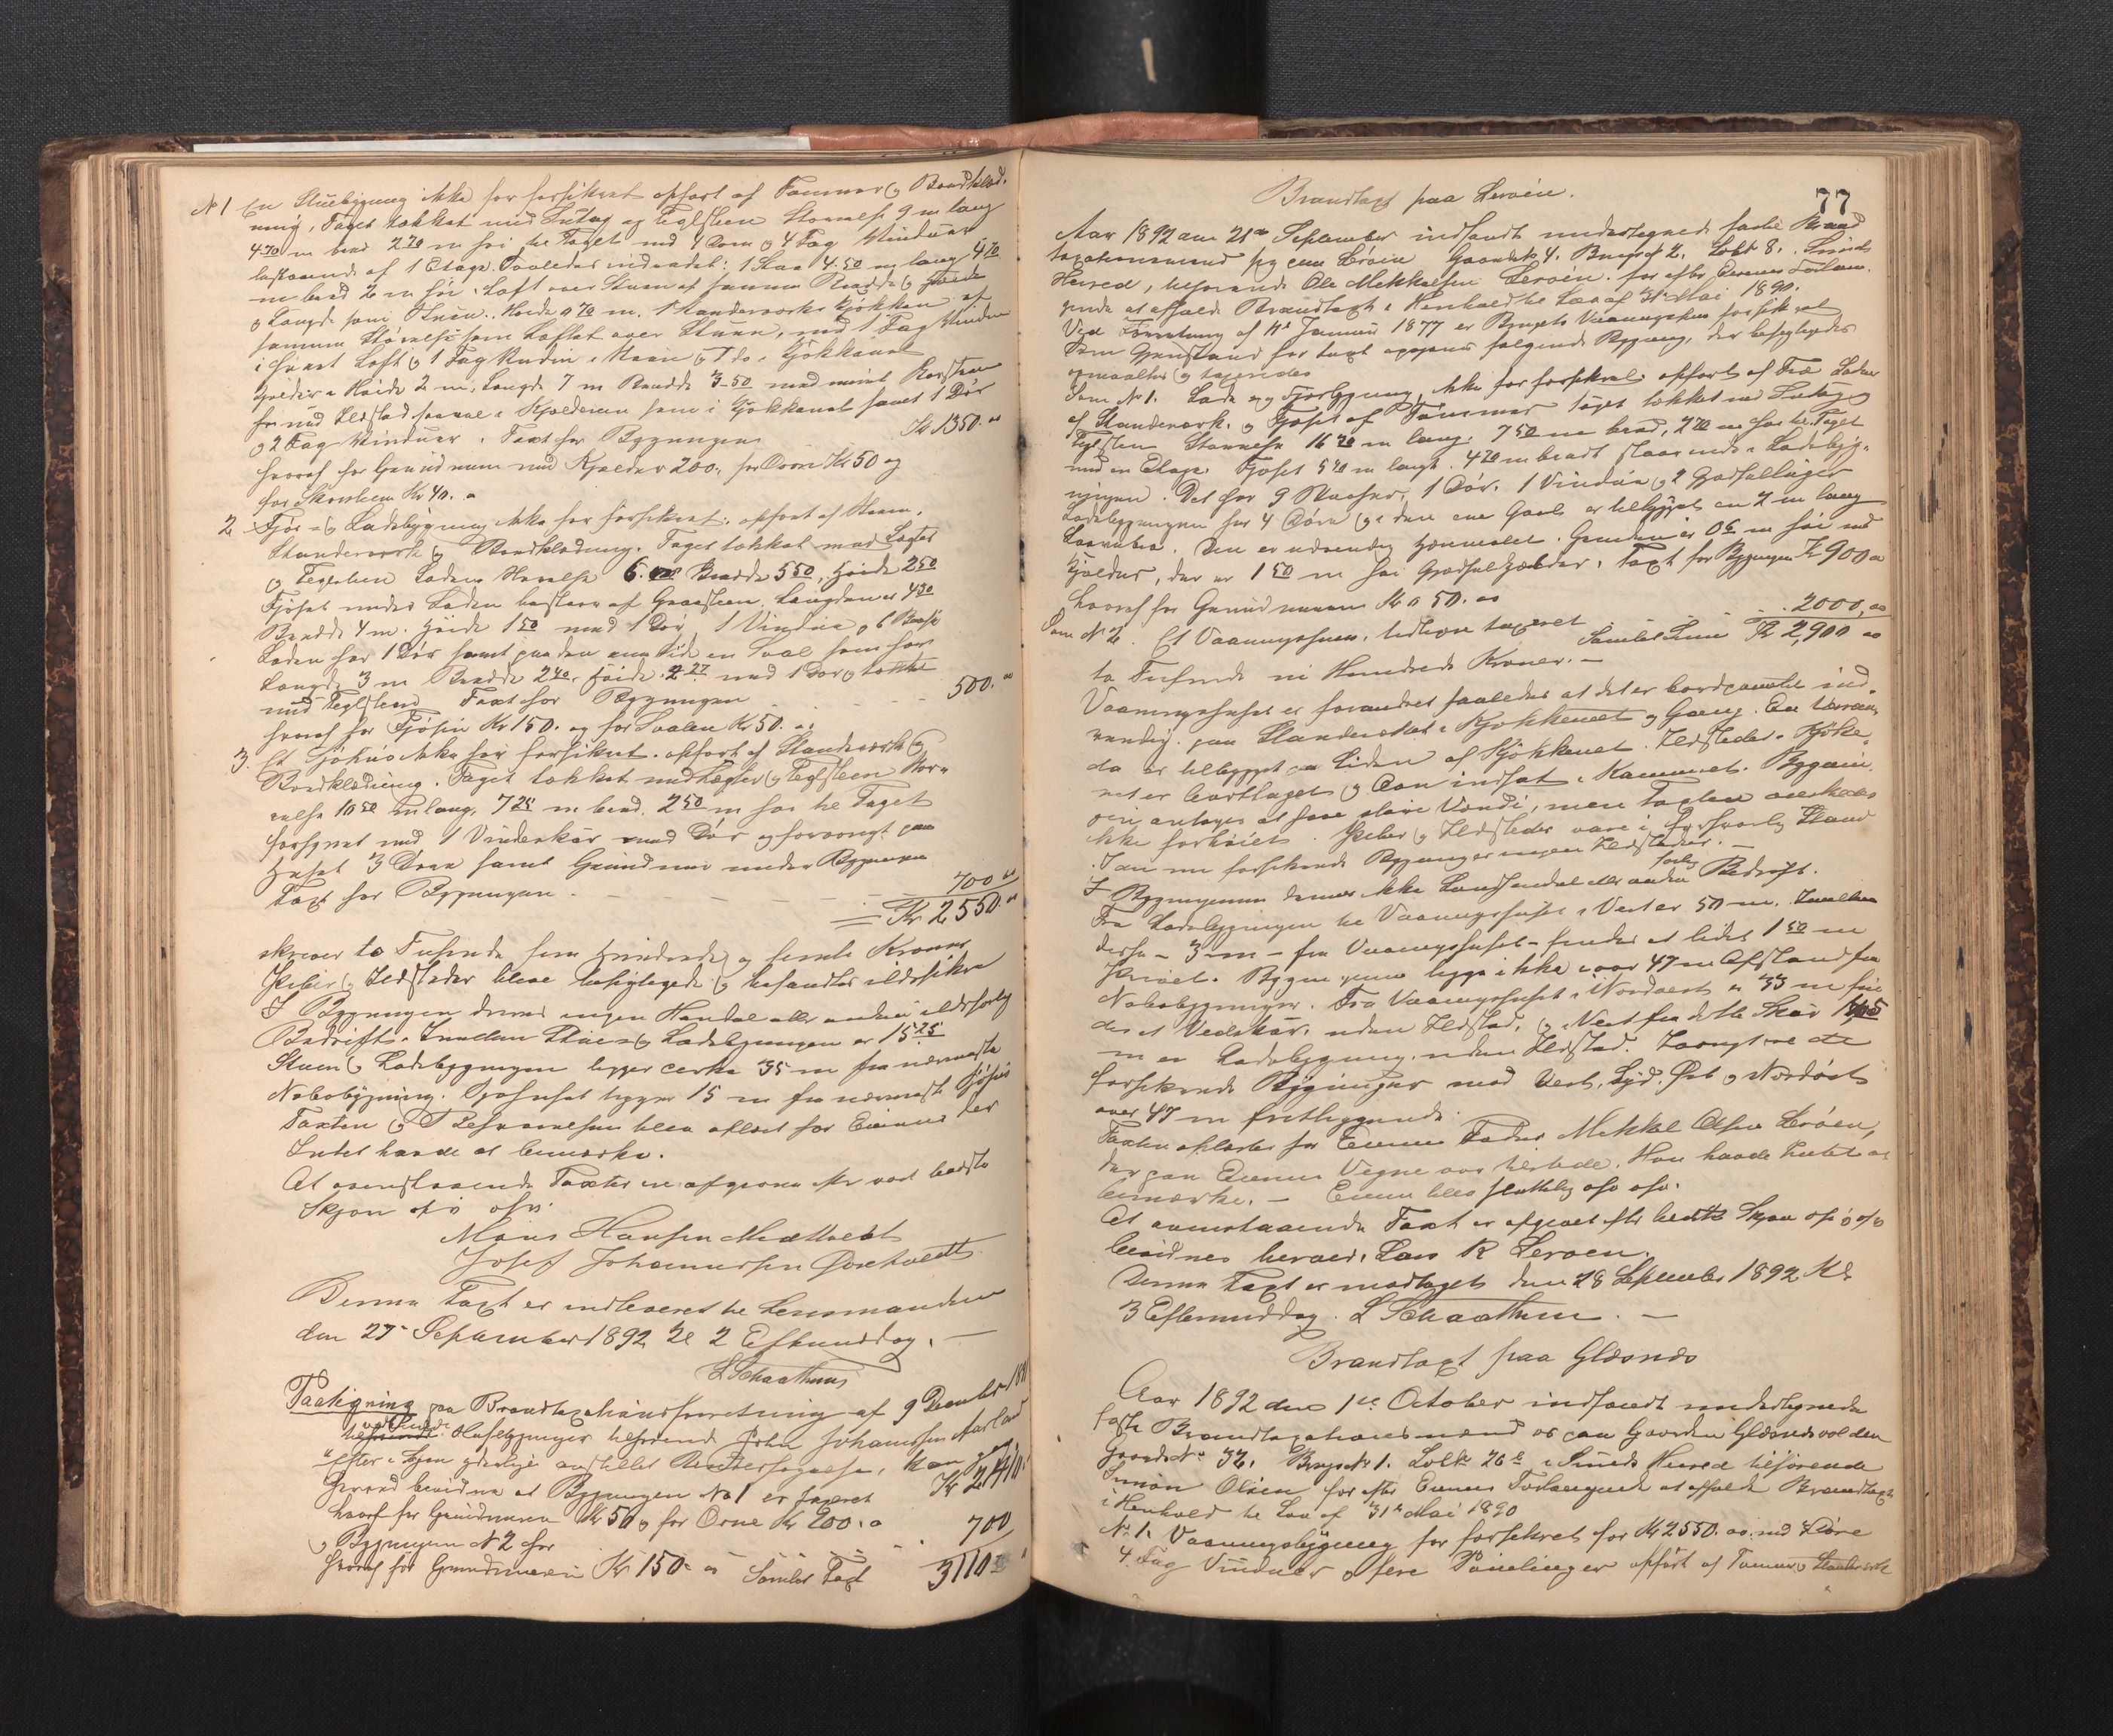 No 1 En Stuebygning ikke før forsikret opført af Tømmer og Bordklæd-
ning, Taget tækket med Sutag og Teglsteen Størrelse 9 m lang
4.70 m bred 2.70 m høi til Taget med 4 Døre og 4 Fag Vinduer
bestaaende af 1 Etage. Saaledes indredet: 1 Stue 4.50 m lang 4.70
m bred 2 m høi. Loft over Stuen af samme Bredde og
og Længde som Stuen. Høide 0.70 m. 1 Standerværks Kjøkken af
samme Størrelse som Loftet over Stuen, med 1 Fag Vindue
i hvert Loft og 1 Fag Vindue i Stuen og 1 do. i Kjøkkenet
Kjelder Høide 2 m. Længde 7 m Bredde 3.50 med muret Skorsteen
for med Ildsted saavel i Kjelderen som i Kjøkkenet samt 1 Dør
og 2 Fag Vinduer. Taxt for Bygningen Kr 1350.00
hvoraf for Grundmuren med Kjelder 200, for Ovne Kr 50 og
for Skorsteen Kr 40.
2 Fjøs- og Ladebygning ikke før forsikret. opført af Steen,
Standerværk og Bordklædning. Taget tækket med Lægter
og Teglsteen Ladens Størrelse 6. Bredde 5.50, Høide 2.50
Fjøset under Laden bestaar af Graasteen. Længden er 4.30
Bredde 4 m. Høide 1.50 med 1 Dør 1 Vindue og 6 Baase
Laden har 1 Dør samt paa den ene Side en Sval som har
Længde 3 m Bredde 2.40, Høide 2.27 med 1 Dør og tækket
med Teglsteen Taxt for Bygningen 500.00
hvoraf for Fjøsen Kr 150. og for Svalen Kr 50.
3. Et Sjøhus ikke før forsikret. opført af Standerværk og
Bordklædning. Taget tækket med Lægter og Teglsteen Stør-
relse 10.50 m lang, 7.25 m bred. 2.50 m høi til Taget
forsynet med 1 Vindeskur med Dør og forøvrigt paa
Huset 3 Døre samt Grundmur under Bygningen
Taxt for Bygningen 700.00
Kr 2550.00
skriver to Tusinde fem Hundrede og femti Kroner
Piber og Ildsteder bleve besigtigede og befandtes ildsikre
I Bygningen drives ingen Handel eller anden ildsfarlig
Bedrift. Imellem Stue- og Ladebygningen er 15.25
Stuen og Ladebygningen ligger cirka 35 m fra nærmeste
Nabobygning. Sjøhuset ligger 15 m fra nærmeste Sjøhus
Taxten og Beskrivelsen blev oplæst for Eieren der
Intet havde at bemærke.
At ovenstaaende Taxter er afgivne efter vort bedste
Skjøn o.s.v. o.s.v.
Mons Hansen
Josef Johannessen
Denne Taxt er indleveret til Lensmanden
den 27 September 1892 Kl 2 Eftermiddag. —
L Schaathun
Paategning paa Brandtaxationsforretning af 9 December
vedkommende Husebygninger tilhørende John Johannessen
efter i Dyen anstillet Undersøgelse, kan
bevidne at Bygningen No 1 er taxeret Kr 2410.
hvoraf for Grundmuren Kr 50 og for Ovne Kr 200.
og Bygningen No 2 for 700
hvoraf for Grundmuren Kr 150. Samlet Taxt 3110.
77
Brandtaxt paa Lerøen.
Aar 1892 den 21de September indfandt undertegnede faste Brand
taxationsmænd sig paa Lerøen Gaardsno 4. Brugsno 2. Løbno 8. Sunds
Herred, tilhørende Ole Mikkelsen Lerøen. for efter Eierens Forlan-
gende at afholde Brandtaxt i Henhold til Lov af 31te Mai 1890.
Ved Forretning af Januar 1877 er Brugets Vaaningshus forsikret
Som Gjenstand for Taxt opgaves følgende Bygning, der besigtigedes
opmaaltes og taxeredes
Som No 1. Lade og Fjøsbygning, ikke før forsikret. opført af Træ Laden
af Standerværk. og Fjøset af Tømmer Taget tækket med Sutag og
Teglsteen Størrelse 16.70 m lang. 7.50 m bred, 2.70 m høi til Taget
med en Etage. Fjøset 5.70 m langt. 4.70 m bredt staaende i Ladebyg-
ningen. Det har 9 Baaser, 1 Dør. 1 Vindue og 2 Gjødsellug.
Ladebygningen har 4 Døre og i den ene Gavl er tilbygget en 2 m lang
Den er udvendig tjæremalet. Grunden er 0.6 m høi med
Kjelder, der er 1.50 m høi Gjødselkjælder. Taxt for Bygningen Kr 900.00
hvoraf for Grundmuren Kr 50.00
Som No 2. Et Vaaningshuus, tidligere taxeret 2000.00
Samlet Sum Kr 2,900.00
to Tusinde ni Hundrede Kroner. —
Vaaningshuset er forandret saaledes at det er bordpanelt ind-
vendig. paa Standerværket i Kjøkkenet og Gang. En Veran-
da er tilbygget paa Siden af Kjøkkenet. Ildstedet i Kjøke-
net er borttaget og Ovn indsat i Kammeret. Bygnin-
gen antages at have større Værdi, men Taxten ønskedes
ikke forhøiet. Piber og Ildsteder vare i forsvarlig Stand
I den nu forsikrede Bygning er ingen Ildsteder. —
I Bygningerne drives ikke Landhandel eller anden farlig Bedrift.
Fra Ladebygningen til Vaaningshuset i Vest er 50 m. Imellem
disse — 3 m — fra Vaaningshuset — findes et lidet 1.50 m
Bygningerne ligge ikke over 47 m Afstand fra
Nabobygninger. Fra Vaaningshuset i Nordvest er 33 m fin-
des et Vedskur, uden Ildsted, og Vest fra dette Skur
m en Ladebygning uden Ildsted. Forøvrigt er de
forsikrede Bygninger mod Vest, Syd, Øst og Nordøst
over 47 m fritliggende.
Taxten oplæstes for Eierens Fader Mikkel Olsen Lerøen,
der paa Eierens Vegne var tilstede. Han havde Intet at
bemærke. — Eieren blev skriftlig o.s.v. o.s.v.
At ovenstaaende Taxt er afgivet efter bedste Skjøn o.s.v. o.s.v.
bevidnes herved. Lars R Lerøen.
Denne Taxt er modtaget den 28 September 1892 Kl.
3 Eftermiddag. L Schaathun. —
Brandtaxt paa Glæsnes
Aar 1892 den 1ste October indfandt undertegnede
faste Brandtaxationsmænd os paa Gaarden Glæsnes
Gaardsno 32. Brugsno 1. Løbno 26 i Sunds Herred tilhørende
Simon Olsen for efter Eierens Forlangende at afholde Brandtaxt
i Henhold til Lov af 31te Mai 1890
No 1. Vaaningsbygning før forsikret for Kr 2550.00 med Døre
4 Fag Vinduer og fere Panelinger opført af Tømmer og Standerværk